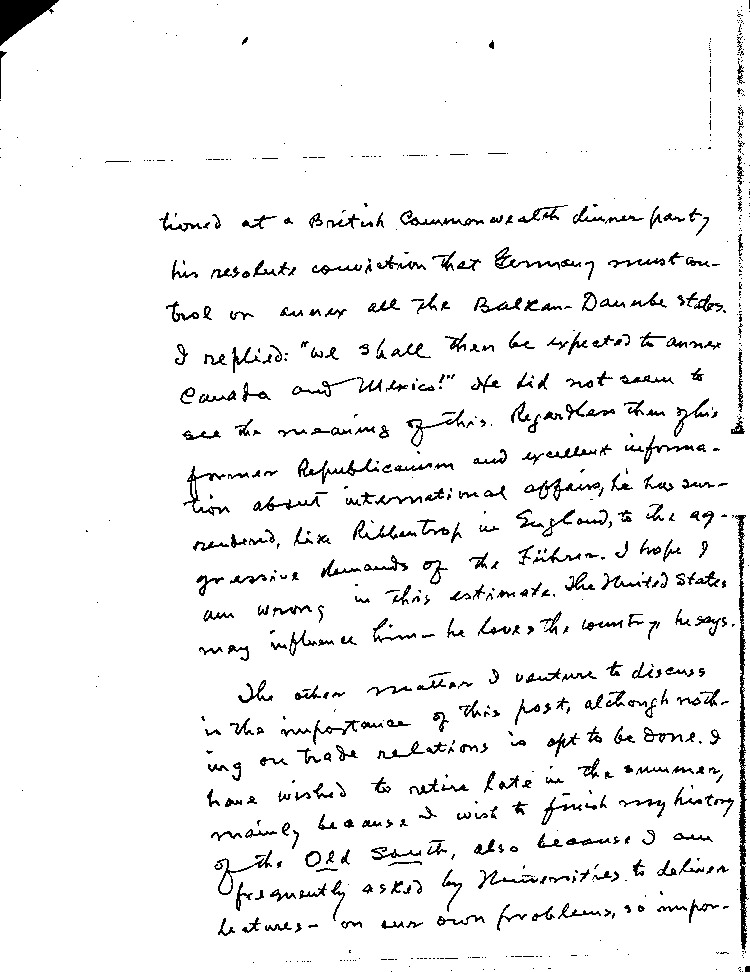 tioned at a British Commonwealth dinner party
his resolute conviction that Germany must con-
trol or annex all the Balkan-Danube states.
I replied: "we shall then be expected to annex
Canada and Mexico!" He did not seem to
see the meaning of this. Regardless then of his
former Republicanism and excellent informa-
tion about international affairs, he has sur-
rendered, like Ribbentrop in England, to the ag-
gressive demands of the Führer. I hope I
am wrong in this estimate. The United States
may influence him - he loves the country, he says.
The other matter I venture to discuss
is the importance of this post, although noth-
ing on trade relations is apt to be done. I
have wished to retire late in the summer,
mainly because I wish to finish my history
of the Old South, also because I am
frequently asked by Universities to deliver
lectures - on our own problems, so impor-